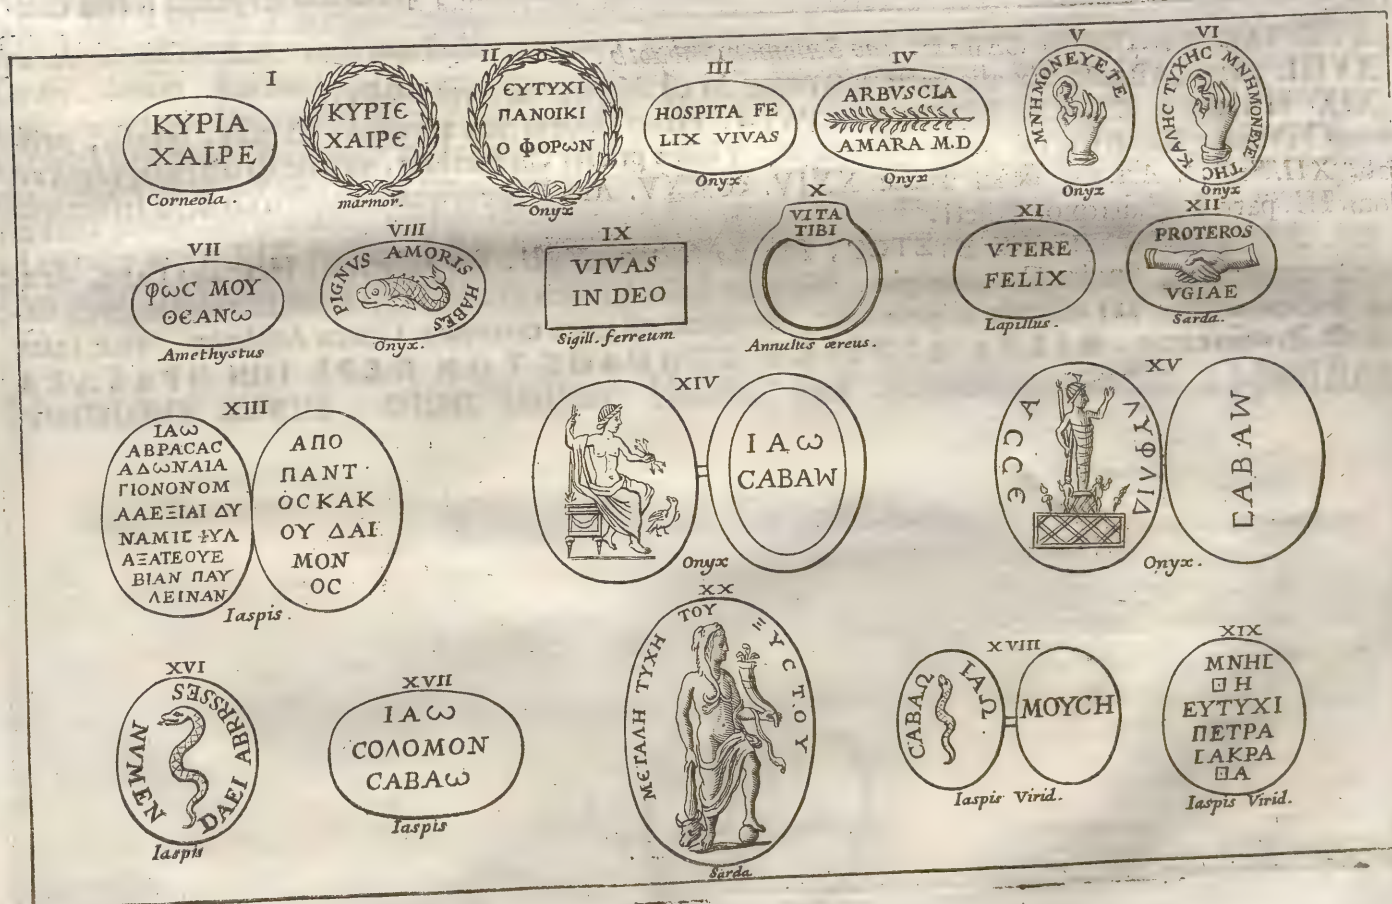 I
ΚΥΡΙΑ
ΧΑΙΡΕ
Corneola.
ΚΥΡΙЄ
ΧΑΙΡЄ
marmor.
II
ЄΥΤΥΧΙ
ΠΑΝΟΙΚΙ
Ο ΦΟΡωΝ
Onyx
III
HOSPITA FE
LIX VIVAS
Onyx
IV
ARBVSCIA
AMARA M.D
Onyx
V
ΜΝΗΜΟΝΕΥΕΤΕ
Onyx
VI
ΜΝΗΜΟΝΕΥΕ
ΤΗC ΚΑΛΗC ΤΥΧΗC
Onyx
VII
φωC ΜΟΥ
ΘЄΑΝω
Amethystus
VIII
PIGNVS AMORIS HABES
Onyx.
IX
VIVAS
IN DEO
Sigill. ferreum
X
VITA
TIBI
Annulus æreus.
XI
VTERE
FELIX
Lapillus.
XII
PROTEROS
VGIAE
Sarda.
XIII
ΙΑω
ΑΒΡΑCΑC
ΑΔωΝΑΙΑ
ΓΙΟΝΟΝΟΜ
ΑΑΕΞΙΑΙ ΔΥ
ΑΞΑΤΕΟΥΕ
ΒΙΑΝ ΠΑΥ
ΛΕΙΝΑΝ
ΑΠΟ
ΠΑΝΤ
ΟC ΚΑΚ
ΟΥ ΔΑΙ
ΜΟΝ
ΟC
Iaspis.
XIV
ΙΑω
CΑΒΑW
Onyx
XV
ΑCCЄ
ΛΥΦΛΙΔ
CΑΒΑW
Onyx.
XVI
NVMEN
DAEI ABRRSSES
Iaspis
XVII
ΙΑω
CΟΛΟΜΟΝ
CΑΒΑω
Iaspis
XX
ΜЄΓΑΛΗ ΤΥΧΗ ΤΟΥ ΞΥCΤΟΥ
Sarda
XVIII
CΑΒΑΩ
ΙΑΩ
ΜΟΥCΗ
Iaspis Virid.
XIX
ΜΝΗC
⊡ Η
ΕΥΤΥΧΙ
ΠΕΤΡΑ
CΑΚΡΑ
⊡Α
Iaspis Virid.